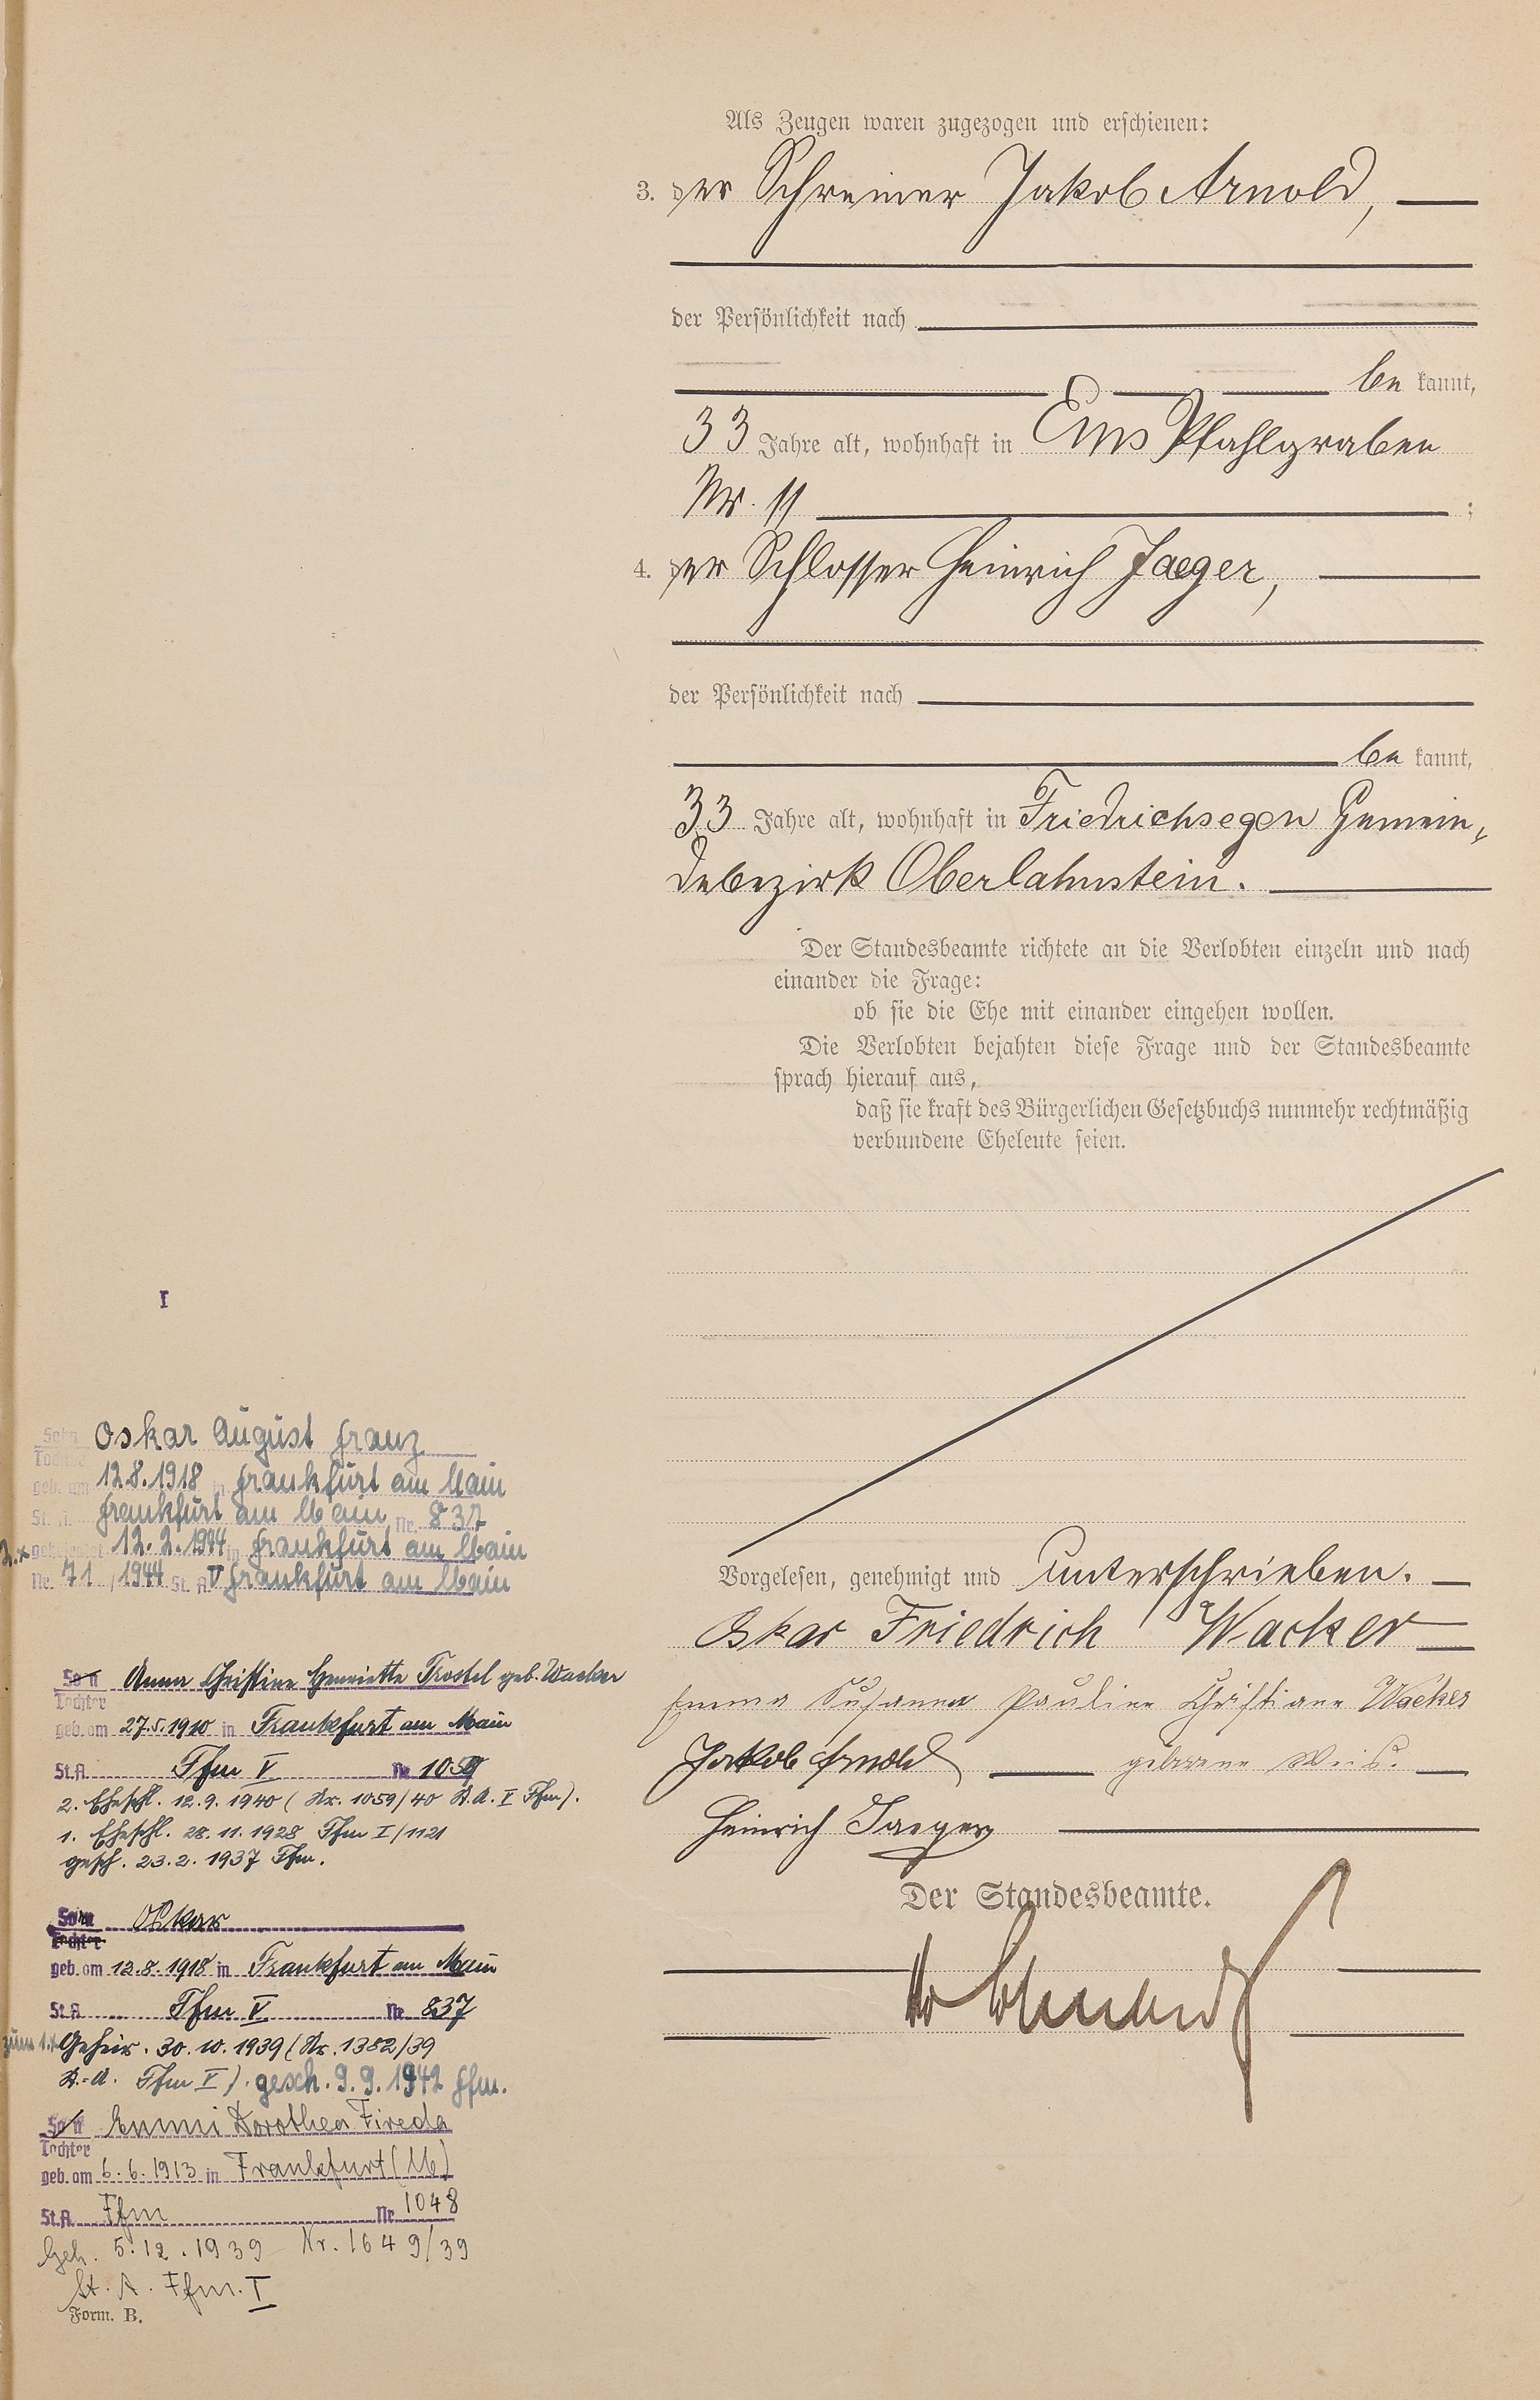 Als Zeugen waren zugezogen und erschienen:
3. der Schreiner Jakob Arnold,
der Persönlichkeit nach
be kannt,
33 Jahre alt, wohnhaft in Ems Pfahlgraben
Nr. 11 ;
4. der Schlosser Heinrich Jaeger,
der Persönlichkeit nach
be kannt,
33 Jahre alt, wohnhaft in Friedrichsegen Gemein-
debezirk Oberlahnstein.
Der Standesbeamte richtete an die Verlobten einzeln und nach
einander die Frage:
ob sie die Ehe mit einander eingehen wollen.
Die Verlobten bejahten diese Frage und der Standesbeamte
sprach hierauf aus,
daß sie kraft des Bürgerlichen Gesetzbuchs nunmehr rechtmäßig
verbundene Eheleute seien.
Vorgelesen, genehmigt und unterschrieben.
Oskar Friedrich Wacker
Emma Susanna Pauline Christiane Wacker
Jakob Arnold geborene Weis.
Heinrich Jaeger
Der Standesbeamte.
I
Sohn Oskar August Franz
Tochter
geb. am 12.8.1918 in Frankfurt am Main
St. A. Frankfurt am Main Nr. 837
2.x geheiratet 12.2.1944 in Frankfurt am Main
Nr. 71 / 1944 St. A. V Frankfurt am Main
Sohn Anna Christine Henriette Trostel geb. Wacker
Tochter
geb. am 27.5.1910 in Frankfurt am Main
St.A. Ffm V Nr.
2. Eheschl. 12.9.1940 (Nr. 1059/40 St.A. V Ffm).
1. Eheschl. 28.11.1928 Ffm I/1121
gesch. 23.2.1937 Ffm.
Sohn Oskar
Tochter
geb. am 12.8.1918 in Frankfurt am Main
St.A. Ffm V Nr. 837
zum 1.x Geheir. 30.10.1939 (Nr. 1382/39
St.-A. Ffm V). gesch. 9.9.1942 Ffm.
Sohn Emmi Dorothea Frieda
Tochter
geb. am 6.6.1913 in Frankfurt (M)
St.A. Ffm Nr. 1048
Geh. 5.12.1939 Nr. 1649/39
St. A. Ffm. I
Form. B.